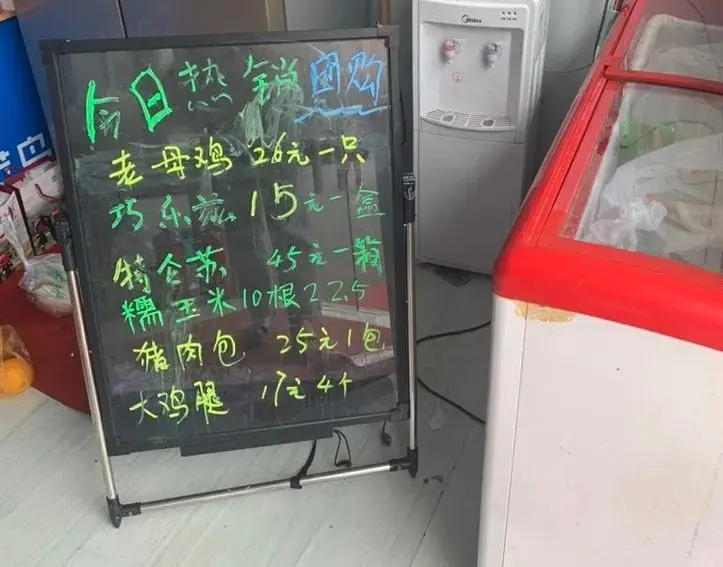 今日热销团购
老母鸡 26元一只
巧乐兹 15元一盒
特仑苏 45元一箱
糯玉米10根22.5
猪肉包 25元1包
大鸡腿 17元4个
Midea